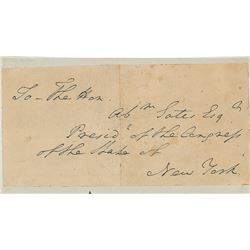 To - The Hon.
Abm Yates Esqr
Presidt of the Congress
of the State of
New York